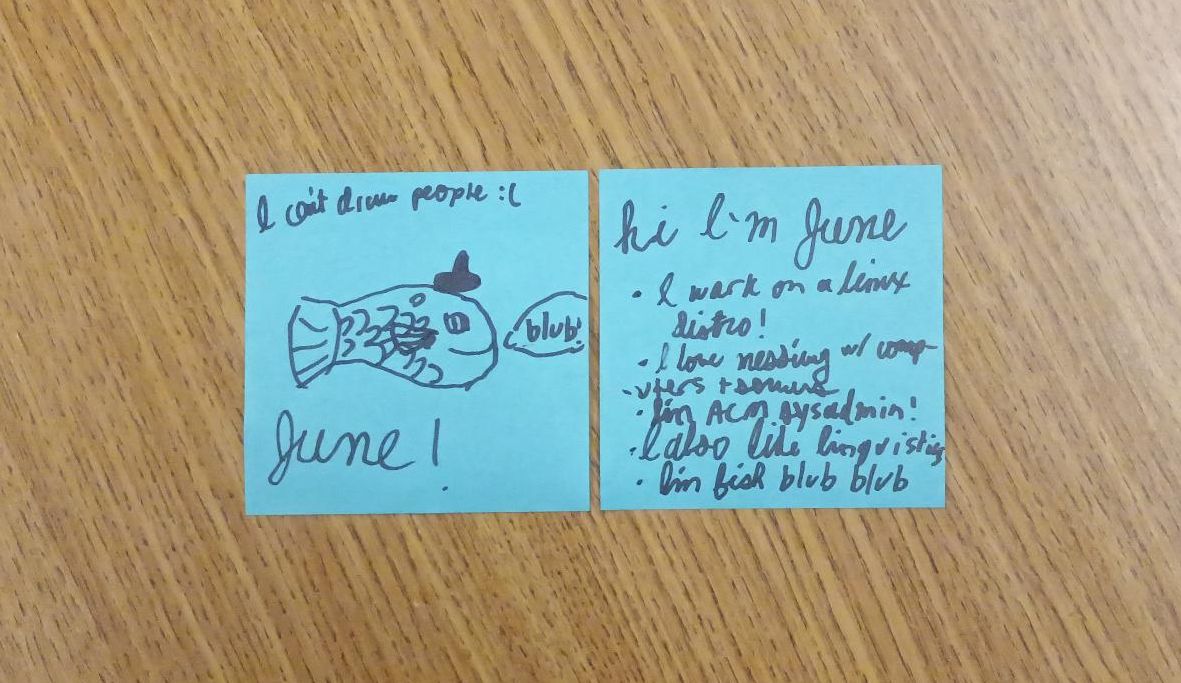 I can't draw people :(
blub!
June!
hi I'm June
• I work on a linux
distro!
• I love messing w/ comp-
uters +
• I'm ACM sysadmin!
• I also like linguistics
• I'm fish blub blub